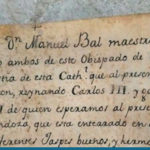 Dn. Manuel Bal maestro
o ambos de este Obispado de
ria de esta Cathl. que al presen
on, reynando Carlos III. y
de quien esperamos al prese
doza, que esta encarado en
ferentes Jaspes buenos, y herm